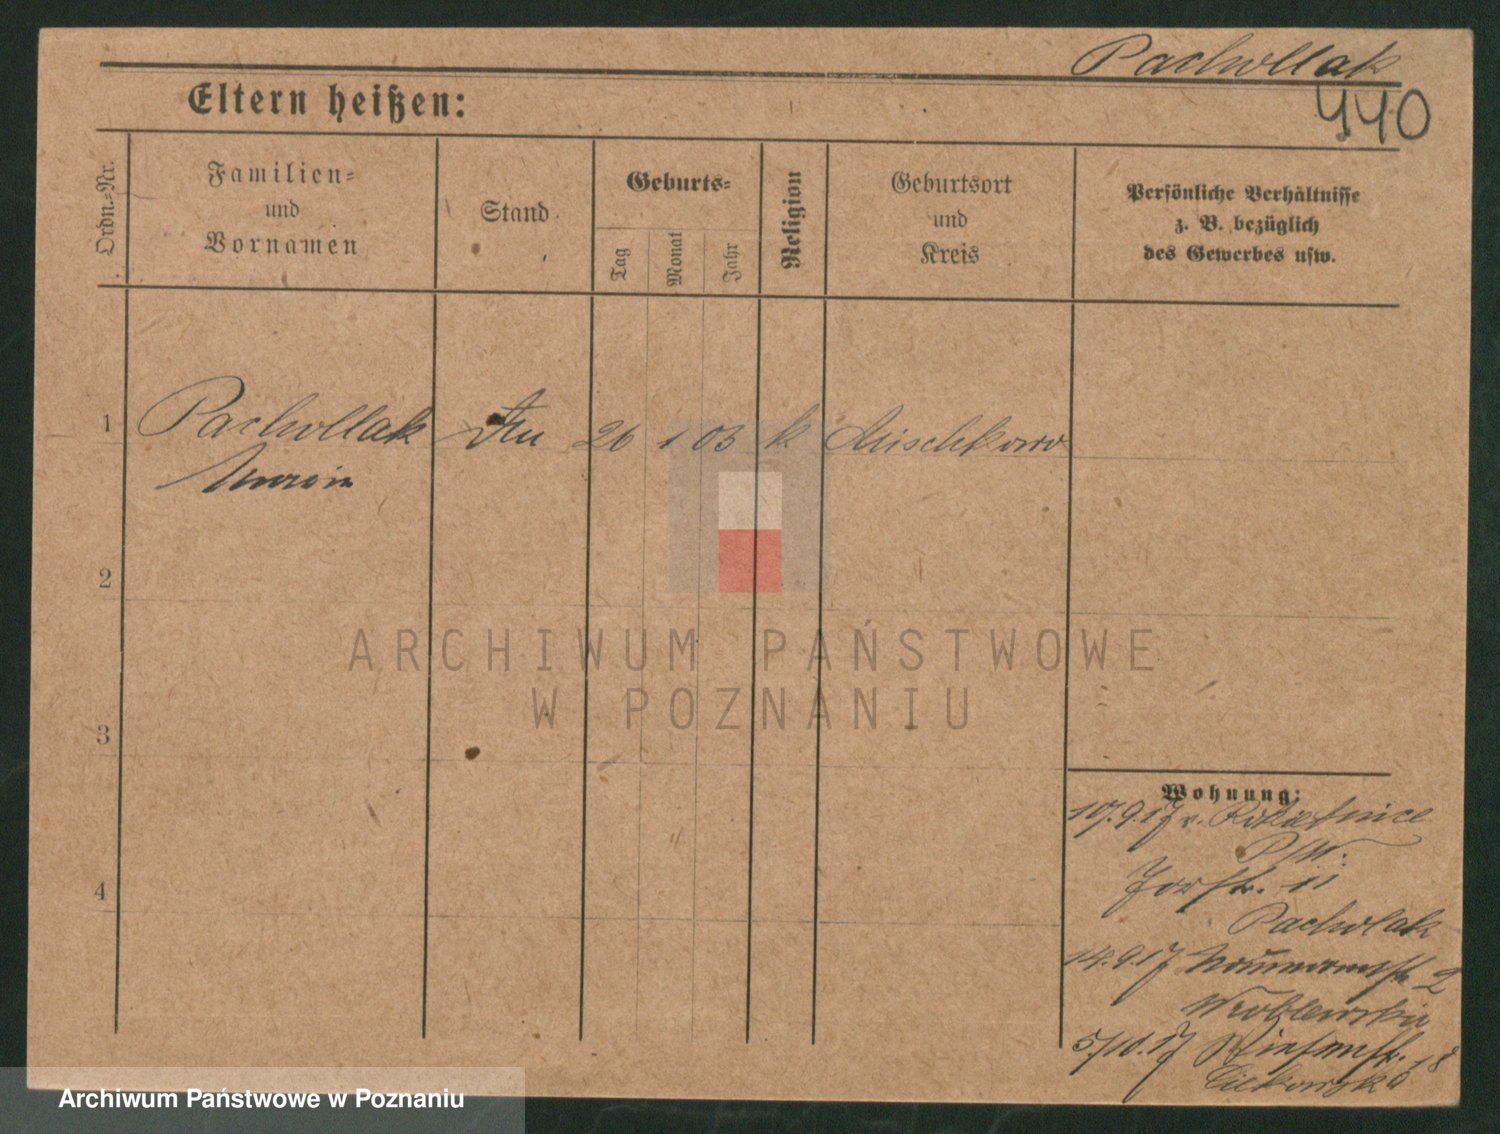 Pachollak
440
Eltern heißen:
Ordn.-Nr.
Familien-
und
Vornamen
Stand
Geburts-
Tag
Monat
Jahr
Religion
Geburtsort
und
Kreis
Persönliche Verhältnisse
z. B. bezüglich
des Gewerbes usw.
1 Pachollak 26 1 03 k Mischkowo
2
3
4
Wohnung:
10.9.17 v. Rokietnice
P/W.
11
Pacholak
14.9.17 2
Wroblewski
5/10.17 Wiesenstr. 18
ARCHIWUM PAŃSTWOWE
W POZNANIU
Archiwum Państwowe w Poznaniu